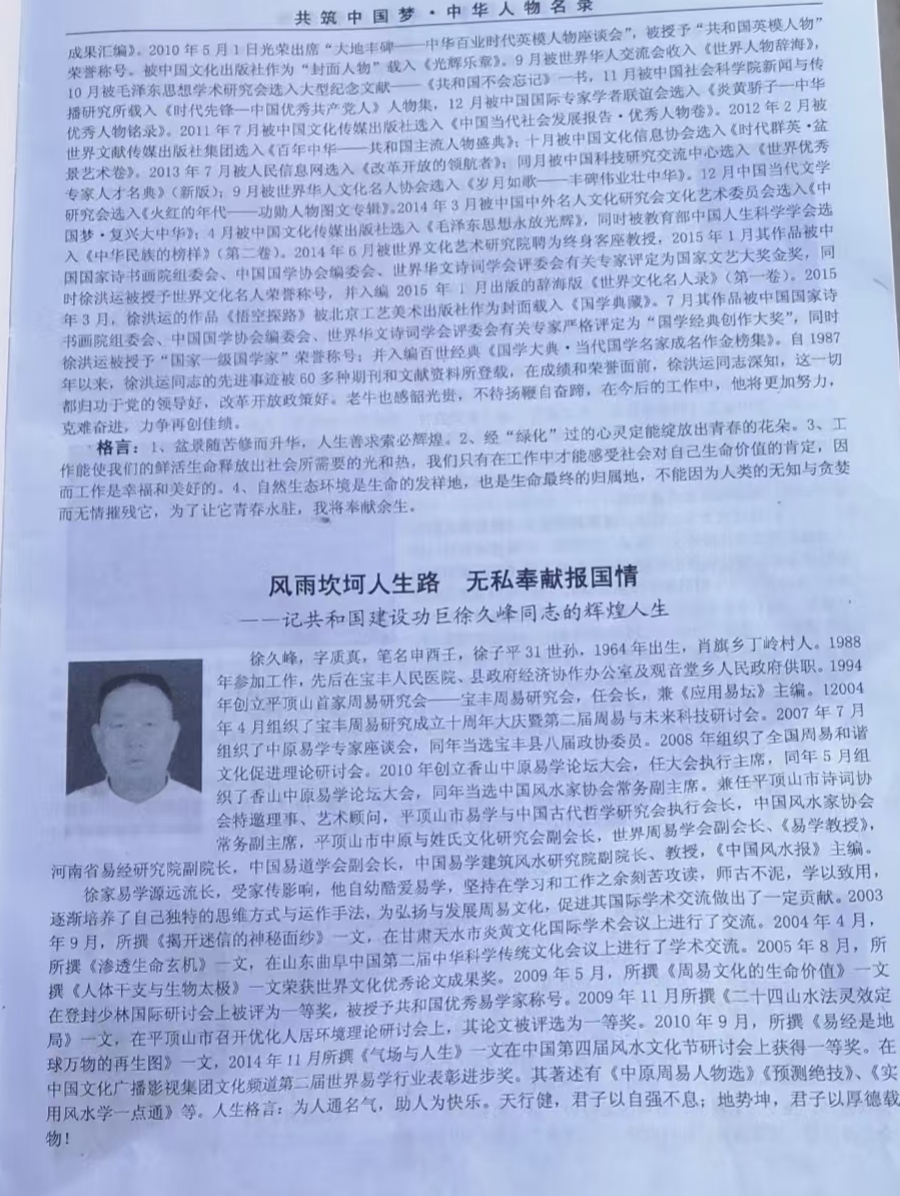 共筑中国梦·中华人物名录
成果汇编》。2010年5月1日光荣出席“大地丰碑——中华百业时代英模人物座谈会”，被授予“共和国英模人物”
荣誉称号。被中国文化出版社作为“封面人物”载入《光辉乐章》。9月被世界华人交流会收入《世界人物辞海》，
10月被毛泽东思想学术研究会选入大型纪念文献——《共和国不会忘记》一书，11月被中国社会科学院新闻与传
播研究所载入《时代先锋—中国优秀共产党人》人物集，12月被中国国际专家学者联谊会选入《炎黄骄子—中华
优秀人物铭录》。2011年7月被中国文化传媒出版社选入《中国当代社会发展报告·优秀人物卷》。2012年2月被
世界文献传媒出版社集团选入《百年中华——共和国主流人物盛典》；十月被中国文化信息协会选入《时代群英·盆
景艺术卷》。2013年7月被人民信息网选入《改革开放的领航者》；同月被中国科技研究交流中心选入《世界优秀
专家人才名典》（新版）；9月被世界华人文化名人协会选入《岁月如歌——丰碑伟业壮中华》。12月中国当代文学
研究会选入《火红的年代——功勋人物图文专辑》。2014年3月被中国中外名人文化研究会文化艺术委员会选入《中
国梦·复兴大中华》；4月被中国文化传媒出版社选入《毛泽东思想永放光辉》，同时被教育部中国人生科学学会选
入《中华民族的榜样》（第二卷）。2014年6月被世界文化艺术研究院聘为终身客座教授，2015年1月其作品被中
国国家诗书画院组委会、中国国学协会编委会、世界华文诗词学会评委会有关专家评定为国家文艺大奖金奖，同
时徐洪运被授予世界文化名人荣誉称号，并入编2015年1月出版的辞海版《世界文化名人录》（第一卷）。2015
年3月，徐洪运的作品《悟空探路》被北京工艺美术出版社作为封面载入《国学典藏》。7月其作品被中国国家诗
书画院组委会、中国国学协会编委会、世界华文诗词学会评委会有关专家严格评定为“国学经典创作大奖”，同时
徐洪运被授予“国家一级国学家”荣誉称号；并入编百世经典《国学大典·当代国学名家成名作金榜集》。自1987
年以来，徐洪运同志的先进事迹被60多种期刊和文献资料所登载，在成绩和荣誉面前，徐洪运同志深知，这一切
都归功于党的领导好，改革开放政策好。老牛也感韶光贵，不待扬鞭自奋蹄，在今后的工作中，他将更加努力，
克难奋进，力争再创佳绩。
格言：1、盆景随苦修而升华，人生善求索必辉煌。2、经“绿化”过的心灵定能绽放出青春的花朵。3、工
作能使我们的鲜活生命释放出社会所需要的光和热，我们只有在工作中才能感受社会对自己生命价值的肯定，因
而工作是幸福和美好的。4、自然生态环境是生命的发祥地，也是生命最终的归属地，不能因为人类的无知与贪婪
而无情摧残它，为了让它青春永驻，我将奉献余生。
风雨坎坷人生路 无私奉献报国情
——记共和国建设功臣徐久峰同志的辉煌人生
徐久峰，字质真，笔名申酉壬，徐子平31世孙，1964年出生，肖旗乡丁岭村人。1988
年参加工作，先后在宝丰人民医院、县政府经济协作办公室及观音堂乡人民政府供职。1994
年创立平顶山首家周易研究会——宝丰周易研究会，任会长，兼《应用易坛》主编。12004
年4月组织了宝丰周易研究成立十周年大庆暨第二届周易与未来科技研讨会。2007年7月
组织了中原易学专家座谈会，同年当选宝丰县八届政协委员。2008年组织了全国周易和谐
文化促进理论研讨会。2010年创立香山中原易学论坛大会，任大会执行主席，同年5月组
织了香山中原易学论坛大会，同年当选中国风水家协会常务副主席。兼任平顶山市诗词协
会特邀理事、艺术顾问，平顶山市易学与中国古代哲学研究会执行会长，中国风水家协会
常务副主席，平顶山市中原与姓氏文化研究会副会长，世界周易学会副会长、《易学教授》，
河南省易经研究院副院长，中国易道学会副会长，中国易学建筑风水研究院副院长、教授，《中国风水报》主编。
徐家易学源远流长，受家传影响，他自幼酷爱易学，坚持在学习和工作之余刻苦攻读，师古不泥，学以致用，
逐渐培养了自己独特的思维方式与运作手法，为弘扬与发展周易文化，促进其国际学术交流做出了一定贡献。2003
年9月，所撰《揭开迷信的神秘面纱》一文，在甘肃天水市炎黄文化国际学术会议上进行了交流。2004年4月，
所撰《渗透生命玄机》一文，在山东曲阜中国第二届中华科学传统文化会议上进行了学术交流。2005年8月，所
撰《人体干支与生物太极》一文荣获世界文化优秀论文成果奖。2009年5月，所撰《周易文化的生命价值》一文
在登封少林国际研讨会上被评为一等奖，被授予共和国优秀易学家称号。2009年11月所撰《二十四山水法灵效定
局》一文，在平顶山市召开优化人居环境理论研讨会上，其论文被评选为一等奖。2010年9月，所撰《易经是地
球万物的再生图》一文，2014年11月所撰《气场与人生》一文在中国第四届风水文化节研讨会上获得一等奖。在
中国文化广播影视集团文化频道第二届世界易学行业表彰进步奖。其著述有《中原周易人物选》《预测绝技》、《实
用风水学一点通》等。人生格言：为人通名气，助人为快乐。天行健，君子以自强不息；地势坤，君子以厚德载
物！